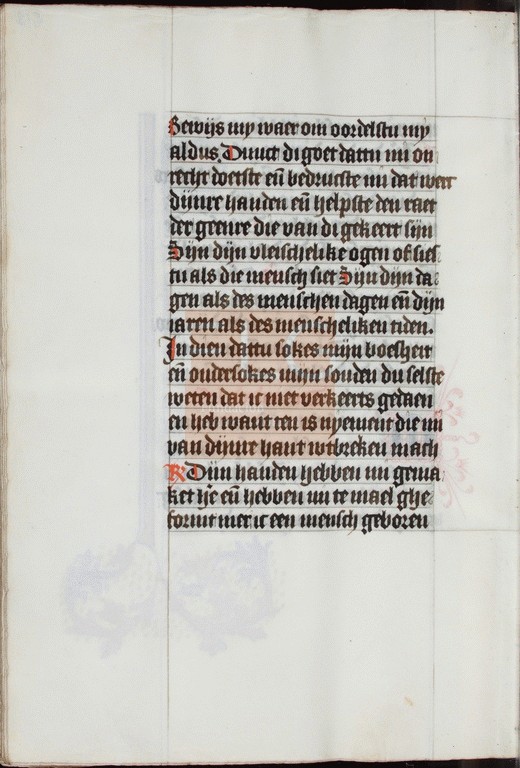 Bewijs my waer om oordelstu my
aldus. Dunct di goet dattu mi on
recht doetste en̄ bedructste mi dat werc
dijnre handen en̄ helpste den raet
der geenre die van di gekeert sijn
Sijn dijn vleischelike ogen of sies
tu als die mensch siet Sijn dijn da
gen als des menschen dagen en̄ dijn
iaren als des menscheliken tiden.
In dien dattu sokes mijn boesheit
en̄ ondersokes mijn sonden du selste
weten dat ic niet verkeerts gedaen
en heb want ten is nyement die mi
van dijnre hant wtbreken mach
R Dijn handen hebben mi gema
ket hē en̄ hebben mi te mael ghe
formt met ic een mensch geboren